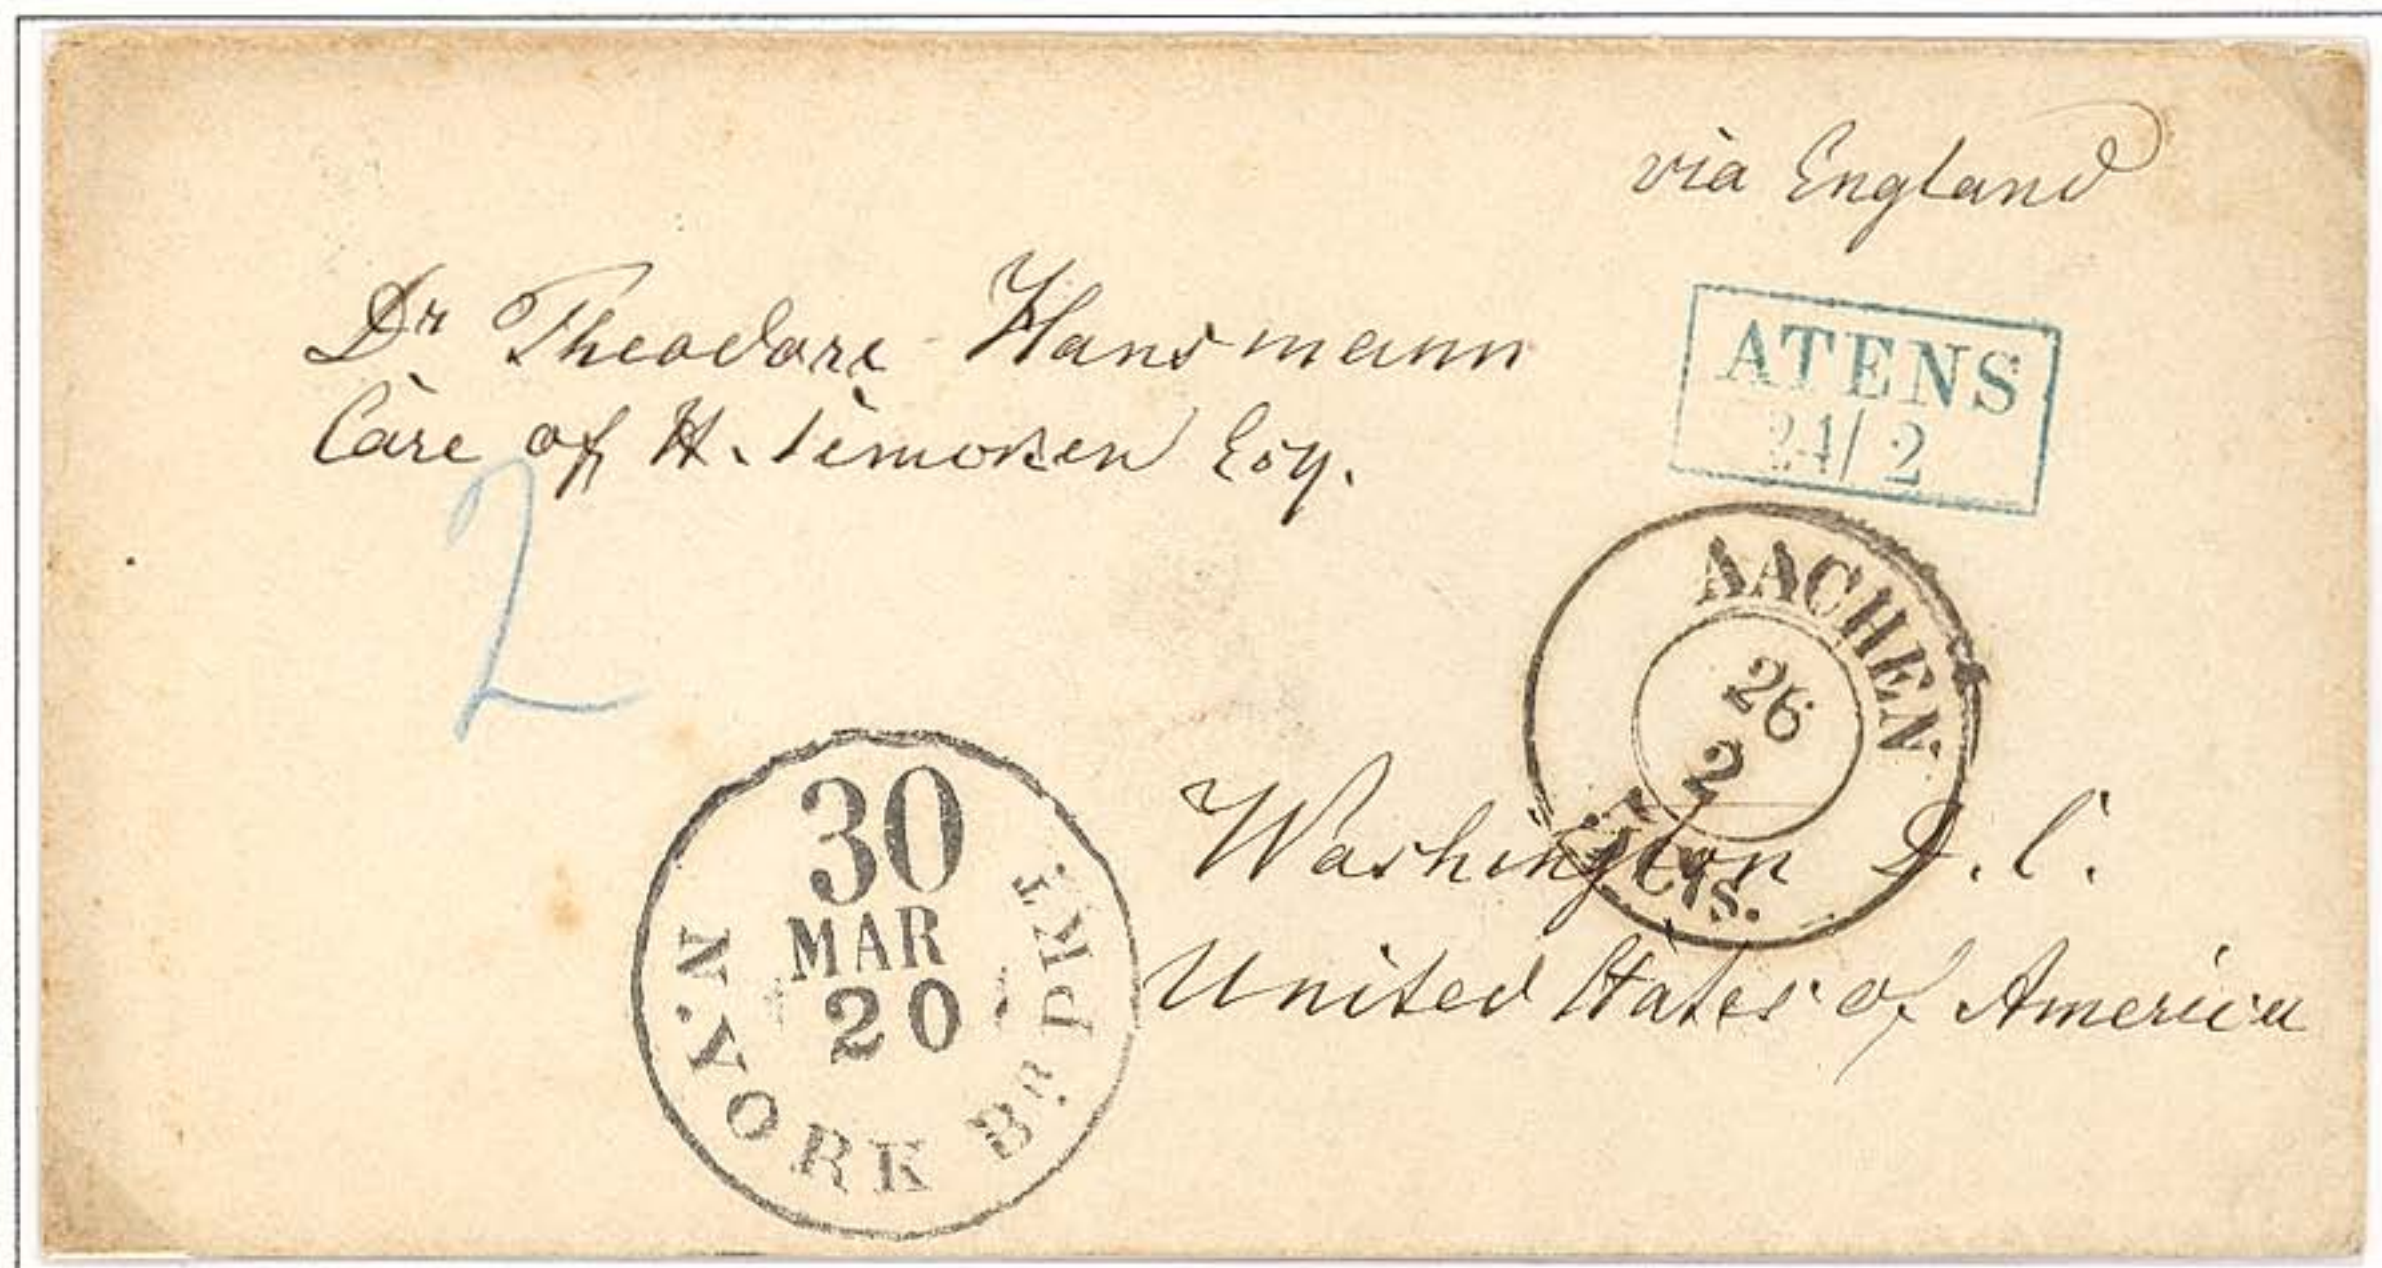 via England
Dr Theodore Hansmann
Care of H. Timoken Esq.
ATENS
24/2
2
AACHEN
26
2
Cts.
30
MAR
20
N. YORK Br. PKT.
Washington D. C.
United States of America